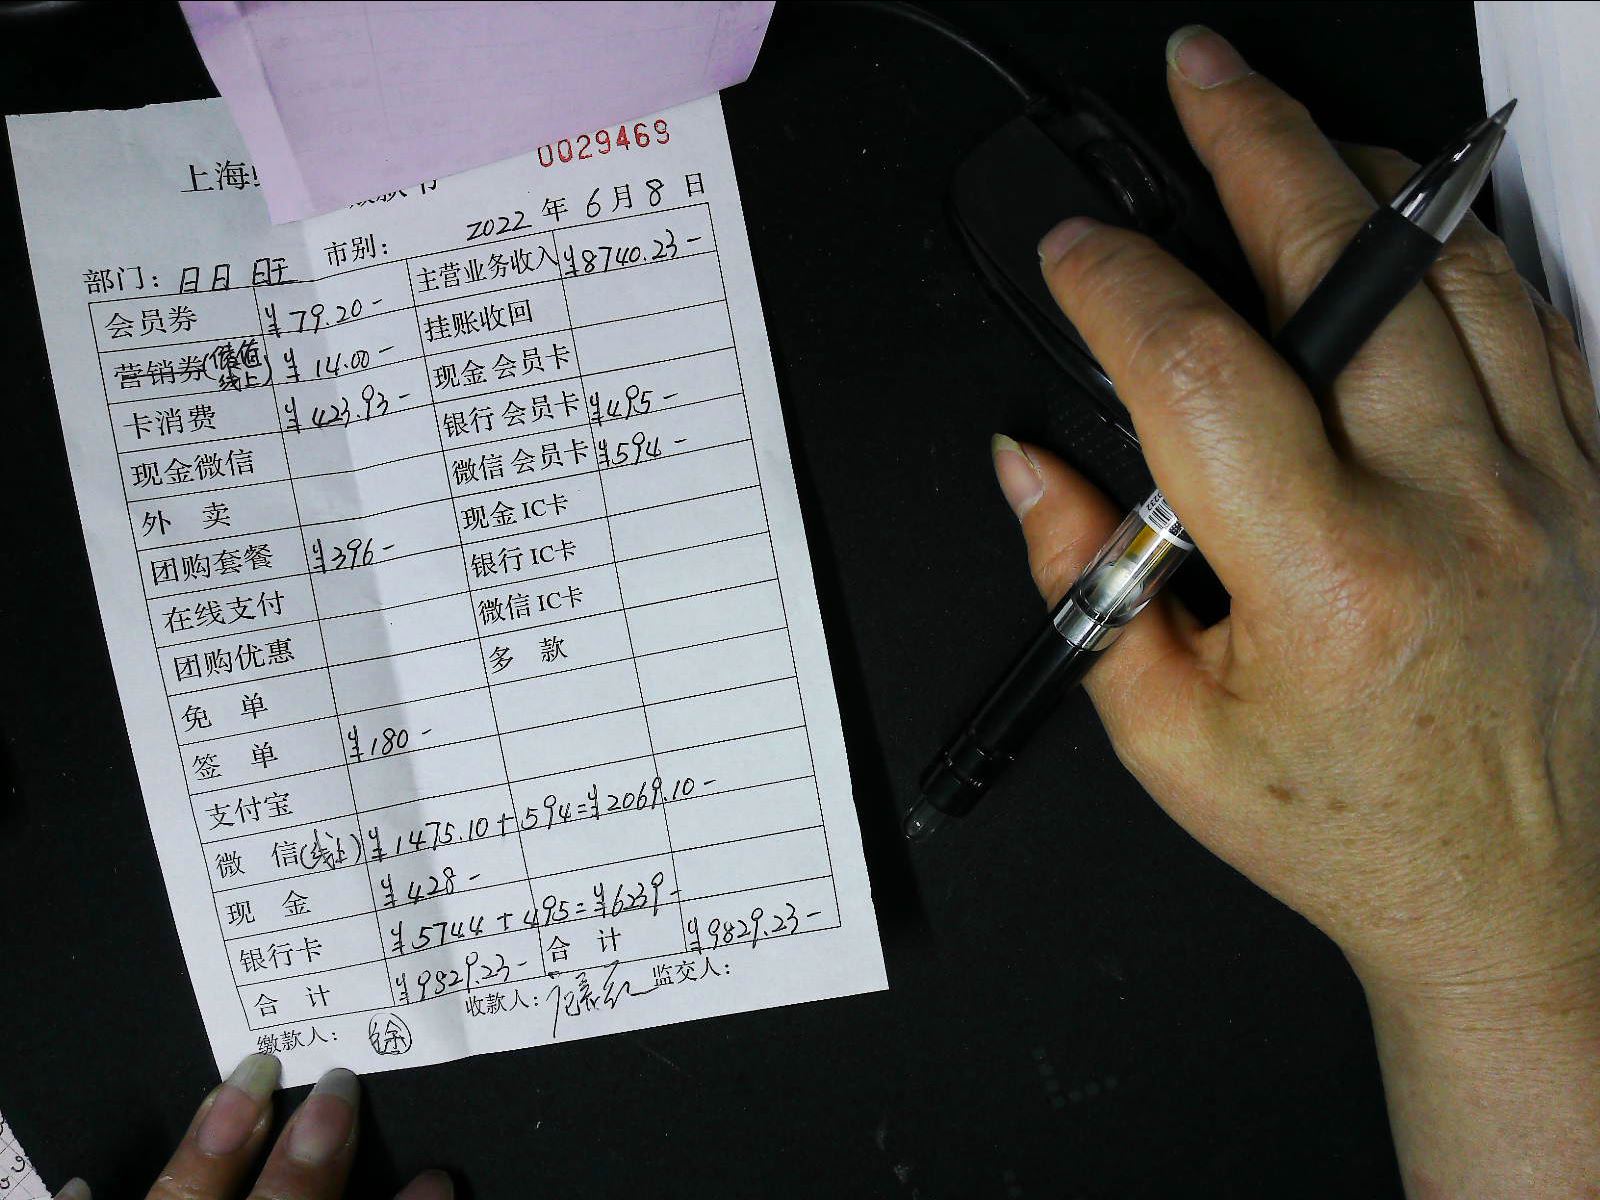 0029469
上海
2022 年 6 月 8 日
部门: 日日旺 市别:
会员券 ¥79.20- 主营业务收入 ¥8740.23-
营销券(储值线上) ¥14.00- 挂账收回
卡消费 ¥423.93- 现金会员卡
现金微信 银行会员卡 ¥495-
外 卖 微信会员卡 ¥594-
团购套餐 ¥396- 现金IC卡
在线支付 银行IC卡
团购优惠 微信IC卡
免 单 多 款
签 单 ¥180-
支付宝
微 信(线上) ¥1475.10+594=¥2069.10-
现 金 ¥428-
银行卡 ¥5744+495=¥6239-
合 计 ¥9829.23- 合 计 ¥9829.23-
缴款人: 徐 收款人: 监交人: